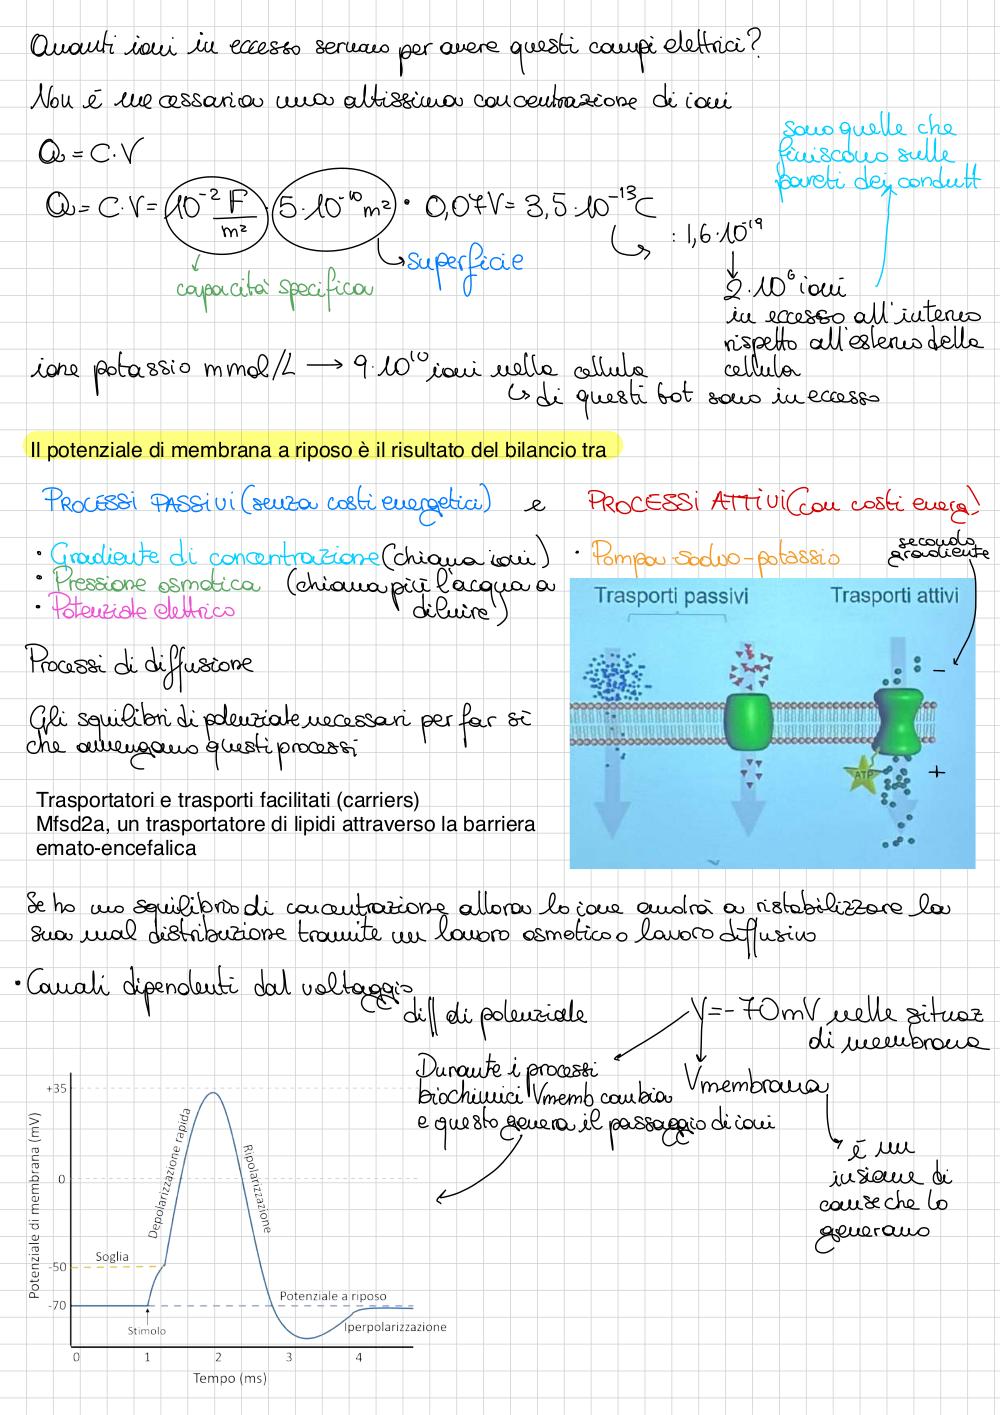 Quanti ioni in eccesso servano per avere questi campi elettrici?
Non é necessaria una altissima concentrazione di ioni
sono quelle che
finiscono sulle
pareti dei condutt
Q = C·V
Q = C·V = 10⁻² F/m² 5·10⁻¹⁰ m² · 0,07V = 3,5·10⁻¹³ C
: 1,6·10⁻¹⁹
capacità specifica
superficie
2·10⁶ ioni
in eccesso all'interno
rispetto all'esterno della
cellula
ione potassio mmol/L → 9·10¹⁰ ioni nella cellula
↳ di questi tot sono in eccesso
Il potenziale di membrana a riposo è il risultato del bilancio tra
PROCESSI PASSIVI (senza costi energetici) e PROCESSI ATTIVI (con costi energ)
• Gradiente di concentrazione (chiama ioni)
• Pressione osmotica (chiama più l'acqua a
diluire)
• Potenziale elettrico
• Pompa sodio-potassio
secondo
gradiente
Trasporti passivi
Trasporti attivi
−
+
ATP
Processi di diffusione
Gli squilibri di potenziale necessari per far sì
che avvengano questi processi
Trasportatori e trasporti facilitati (carriers)
Mfsd2a, un trasportatore di lipidi attraverso la barriera
emato-encefalica
Se ho uno squilibrio di concentrazione allora lo ione andrà a ristabilizzare la
sua mal distribuzione tramite un lavoro osmotico o lavoro diffusivo
• Canali dipendenti dal voltaggio
diff di potenziale
V = -70mV nelle situaz
di membrana
Durante i processi
biochimici Vmemb cambia
e questo genera il passaggio di ioni
Vmembrana
é un
insieme di
cause che lo
generano
Potenziale di membrana (mV)
+35
0
-50
-70
Depolarizzazione rapida
Ripolarizzazione
Soglia
Potenziale a riposo
Stimolo
Iperpolarizzazione
0 1 2 3 4
Tempo (ms)